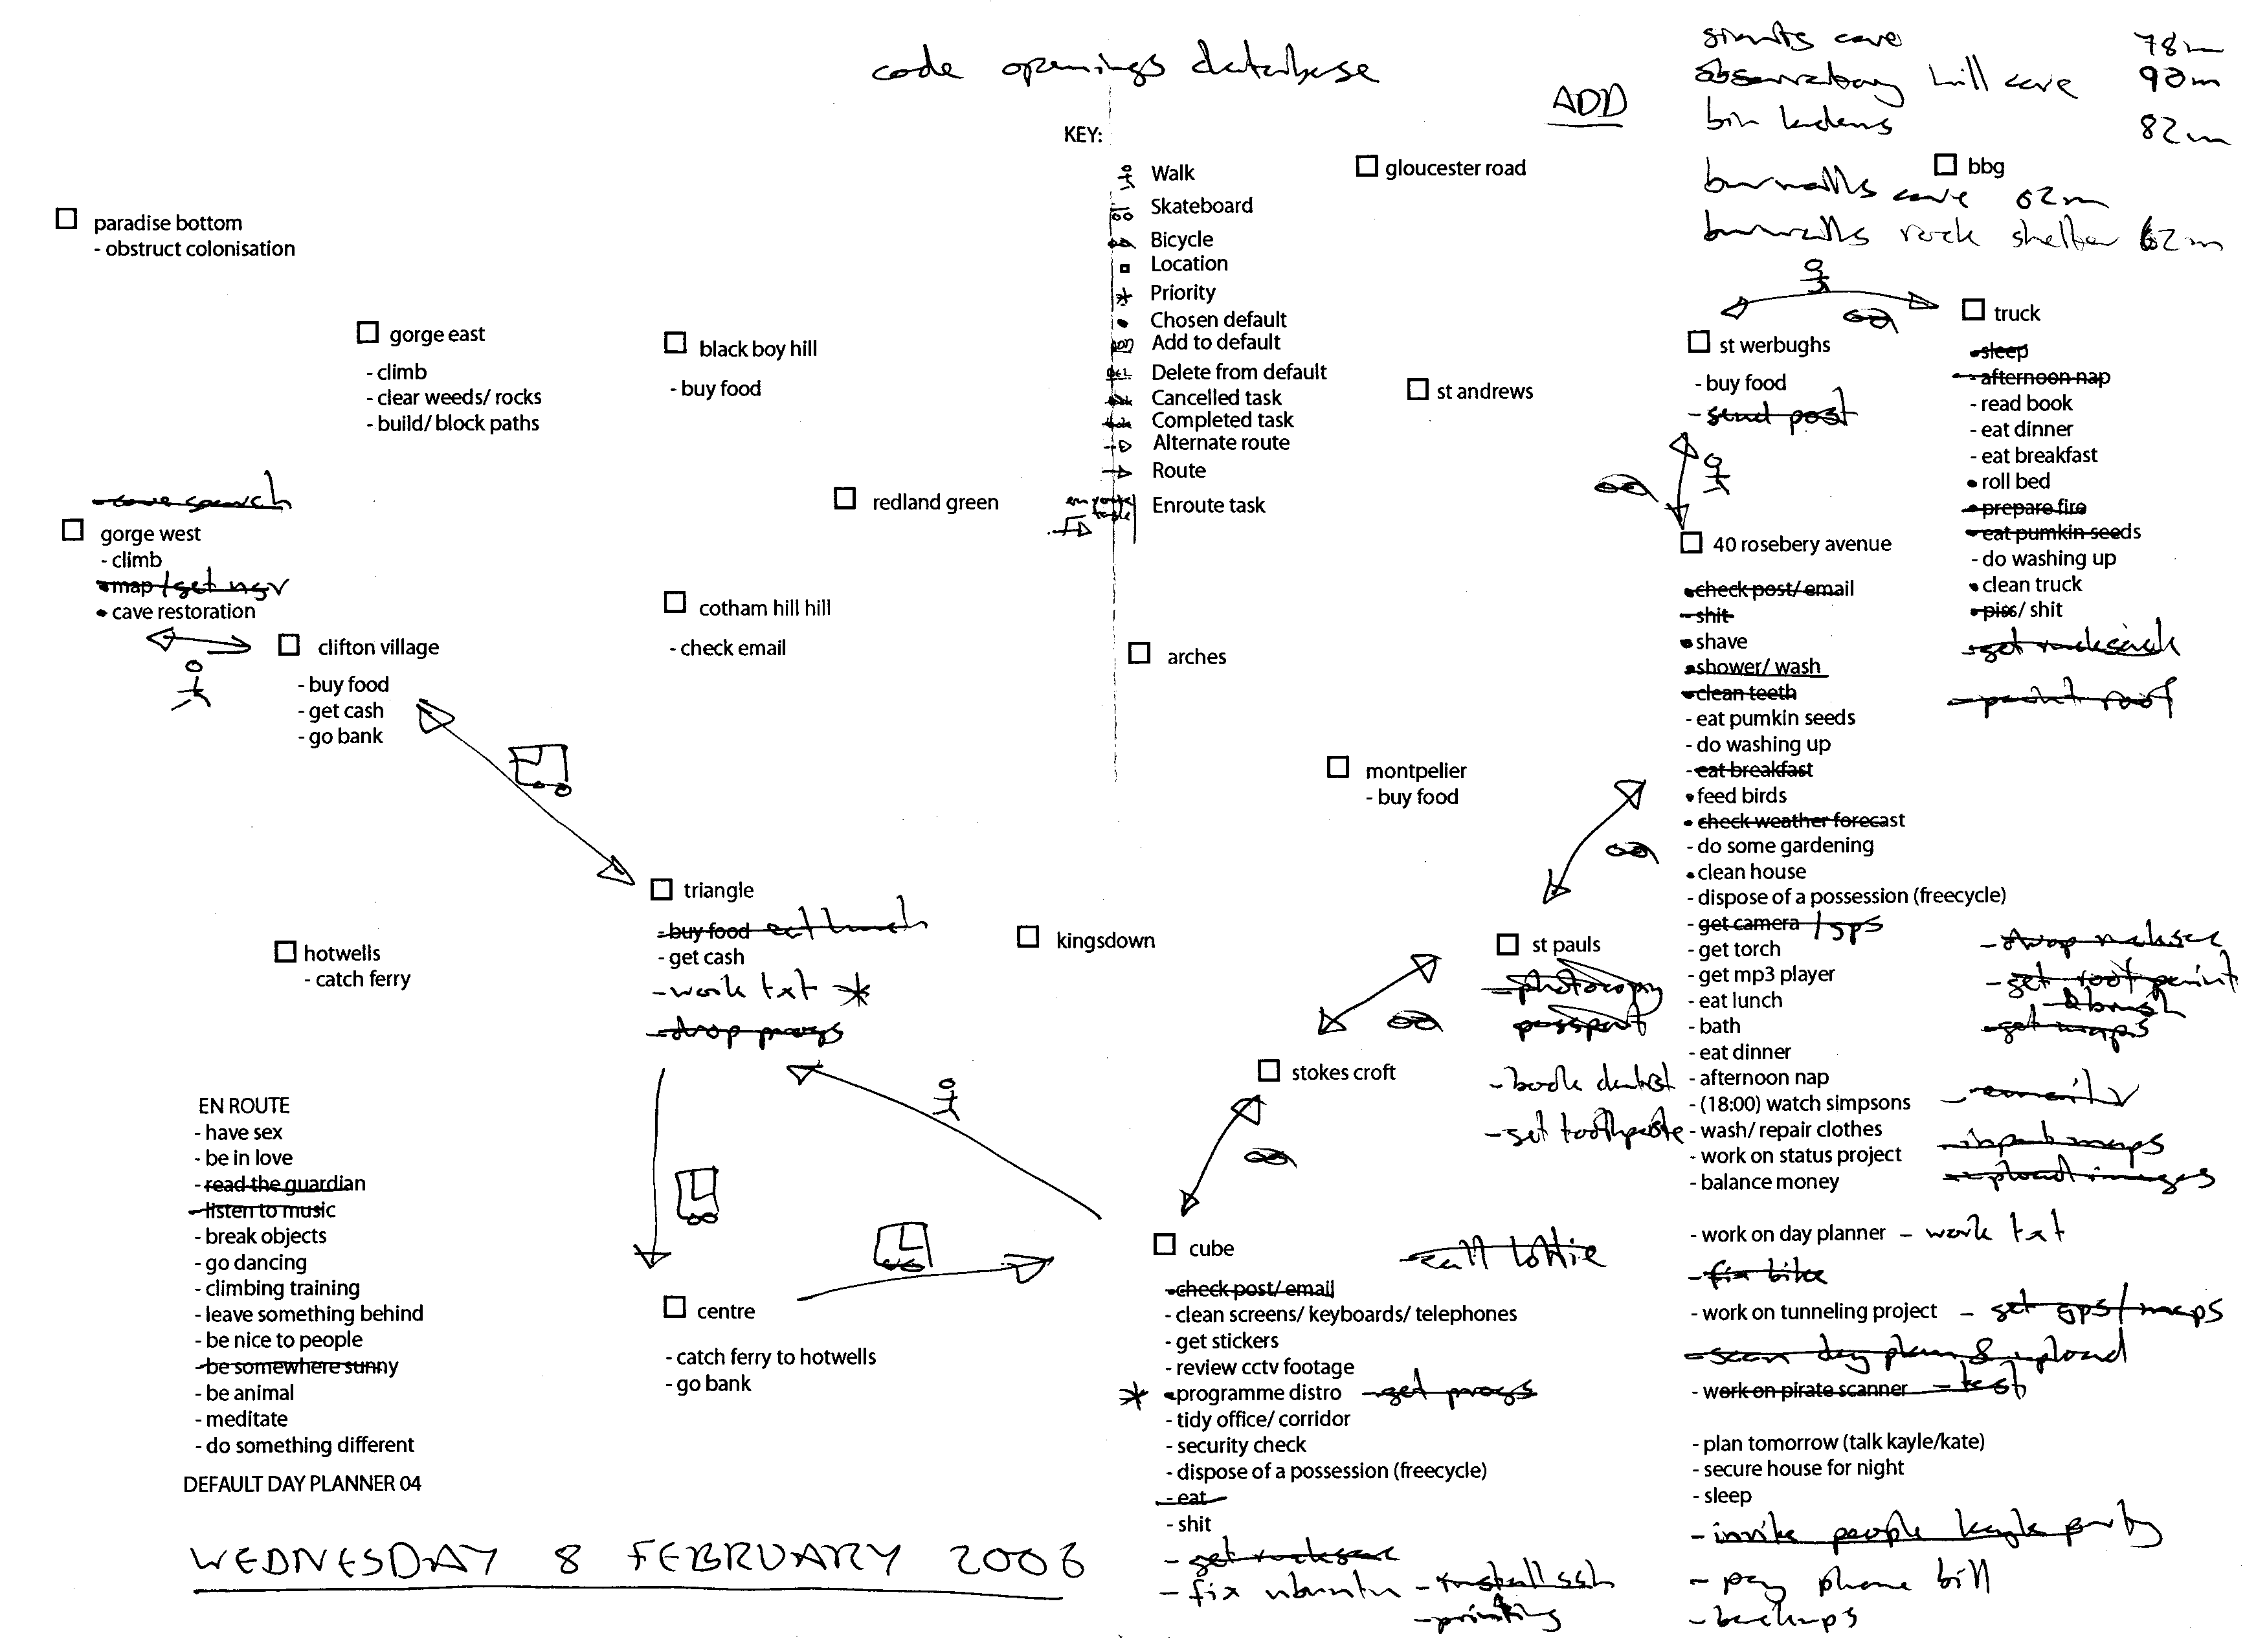 code openings database
ADD
giants cave 78m
observatory hill cave 90m
bin ladens 82m
burwalls cave 62m
burwalls rock shelter 62m
KEY:
Walk
Skateboard
Bicycle
Location
Priority
Chosen default
Add to default
Delete from default
Cancelled task
Completed task
Alternate route
Route
Enroute task
gloucester road
bbg
paradise bottom
- obstruct colonisation
gorge east
- climb
- clear weeds/ rocks
- build/ block paths
black boy hill
- buy food
st andrews
redland green
st werbughs
- buy food
- send post
truck
- sleep
- afternoon nap
- read book
- eat dinner
- eat breakfast
• roll bed
- prepare fire
- eat pumkin seeds
- do washing up
• clean truck
• piss/ shit
- get rucksack
- paint roof
- cave search
gorge west
- climb
• map / get ngr
• cave restoration
clifton village
- buy food
- get cash
- go bank
cotham hill hill
- check email
arches
40 rosebery avenue
- check post/ email
- shit
• shave
• shower/ wash
- clean teeth
- eat pumkin seeds
- do washing up
- eat breakfast
• feed birds
• check weather forecast
- do some gardening
• clean house
- dispose of a possession (freecycle)
- get camera / gps
- get torch
- get mp3 player
- eat lunch
- bath
- eat dinner
- afternoon nap
- (18:00) watch simpsons
- wash/ repair clothes
- work on status project
- balance money
- work on day planner - work txt
- fix bike
- work on tunneling project - get gps/maps
- scan day plan & upload
- work on pirate scanner - test
- plan tomorrow (talk kayle/kate)
- secure house for night
- sleep
- invite people kayle party
- pay phone bill
- backups
- drop rucksac
- get roof paint
& brush
- get maps
- input maps
- upload images
montpelier
- buy food
triangle
- buy food eat lunch
- get cash
- work txt *
- drop progs
hotwells
- catch ferry
kingsdown
st pauls
- photocopy
passport
- book dentist
- get toothpaste
stokes croft
EN ROUTE
- have sex
- be in love
- read the guardian
- listen to music
- break objects
- go dancing
- climbing training
- leave something behind
- be nice to people
- be somewhere sunny
- be animal
- meditate
- do something different
DEFAULT DAY PLANNER 04
centre
- catch ferry to hotwells
- go bank
cube
- call lottie
- check post/ email
- clean screens/ keyboards/ telephones
- get stickers
- review cctv footage
* • programme distro - get progs
- tidy office/ corridor
- security check
- dispose of a possession (freecycle)
- eat
- shit
- get rucksac
- fix ubuntu - install ssh
- printing
WEDNESDAY 8 FEBRUARY 2006